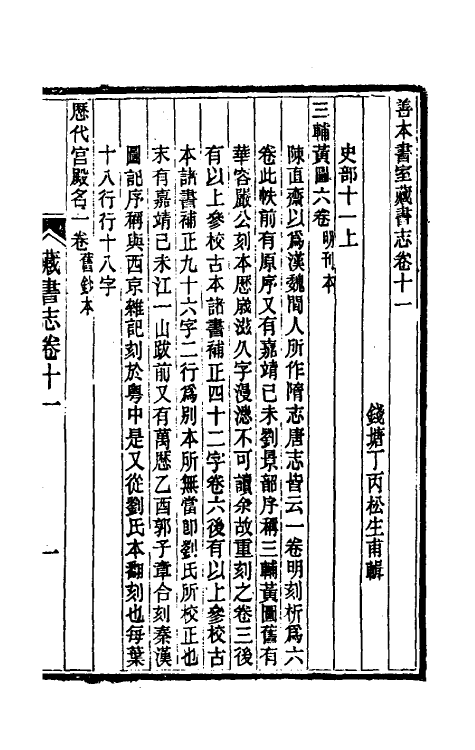 善本書室藏書志卷十一
錢塘丁丙松生甫輯
史部十一上
三輔黃圖六卷 明刊本
陳直齋以爲漢魏間人所作隋志唐志皆云一卷明刻析爲六
卷此帙前有原序又有嘉靖己未劉景韶序稱三輔黃圖舊有
華容嚴公刻本歷歲滋久字漫漶不可讀余故重刻之卷三後
有以上參校古本諸書補正四十二字卷六後有以上參校古
本諸書補正九十六字二行爲別本所無當卽劉氏所校正也
末有嘉靖己未江一山跋前又有萬歷乙酉郭子章合刻秦漢
圖記序稱與西京雜記刻於粵中是又從劉氏本翻刻也每葉
十八行行十八字
歷代宫殿名一卷 舊鈔本
藏書志卷十一
一